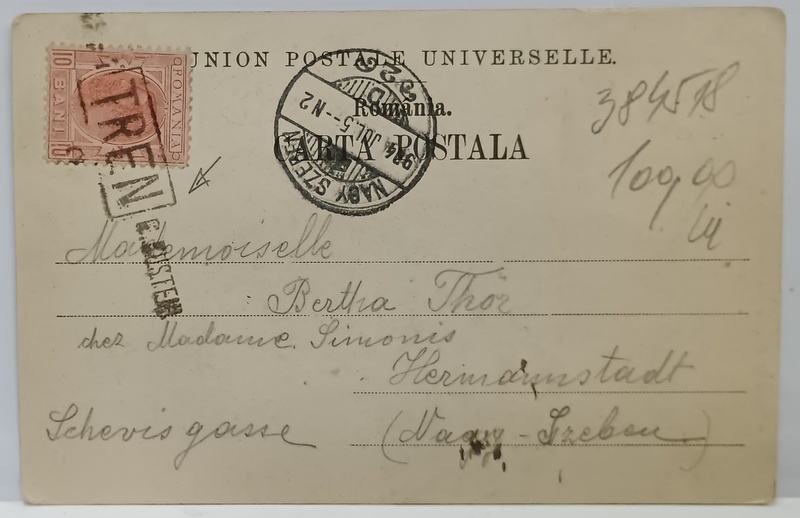 UNION POSTALE UNIVERSELLE.
România.
CARTA POSTALA
10
BANI
ROMANIA
TREN
NAGY SZEBEN
JUL. 5 - N 2
384518
100,00
lei
Mademoiselle
Bertha Thör
chez Madame Simonis
Hermannstadt
Schevisgasse (Nagy-Szeben)